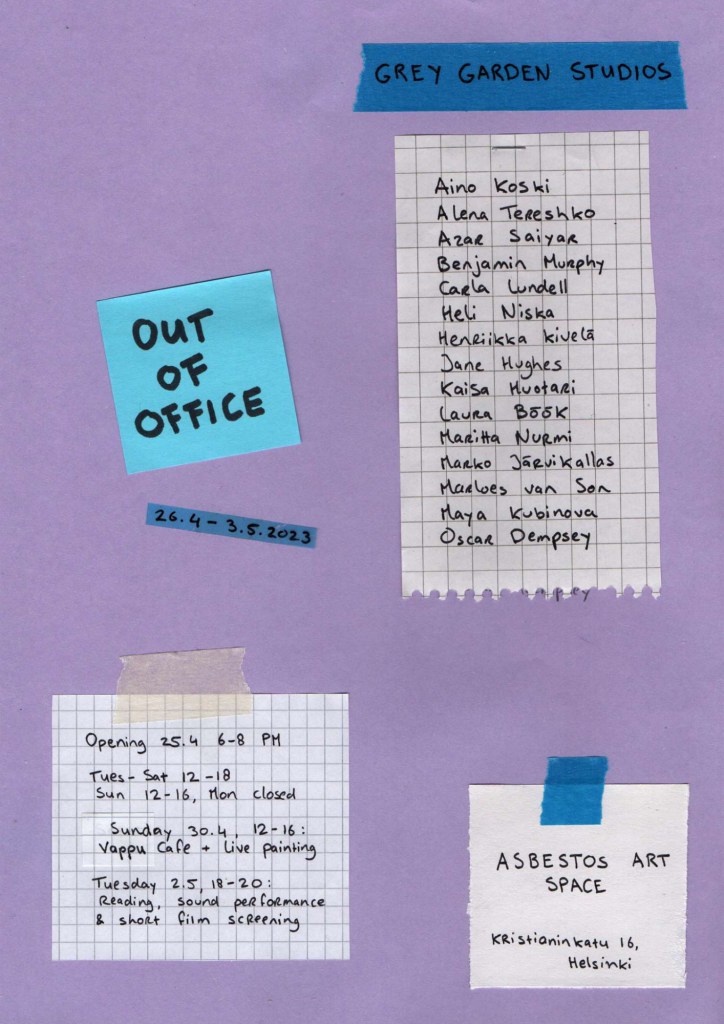 GREY GARDEN STUDIOS
Aino Koski
Alena Tereshko
Azar Saiyar
Benjamin Murphy
Carla Lundell
Heli Niska
Henriikka Kivelä
Jane Hughes
Kaisa Huotari
Laura Böök
Maritta Nurmi
Marko Järvikallas
Marloes van Son
Maya Kubinova
Oscar Dempsey
OUT
OF
OFFICE
26.4 – 3.5.2023
Opening 25.4 6-8 PM
Tues- Sat 12-18
Sun 12-16, Mon closed
Sunday 30.4, 12-16:
Vappu Cafe + Live painting
Tuesday 2.5, 18-20:
Reading, sound performance
& short film screening
ASBESTOS ART
SPACE
Kristianinkatu 16,
Helsinki